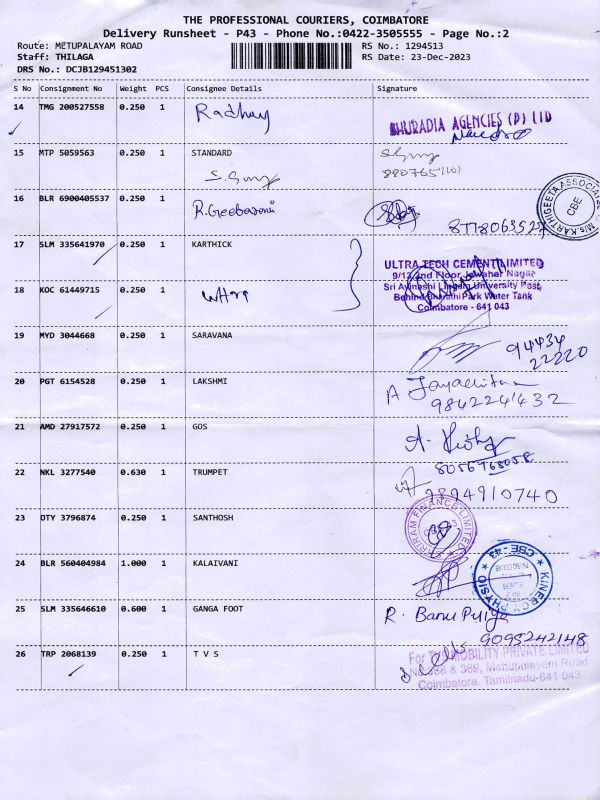 THE PROFESSIONAL COURIERS, COIMBATORE
Delivery Runsheet - P43 - Phone No.:0422-3505555 - Page No.:2
Route: METUPALAYAM ROAD
RS No.: 1294513
Staff: THILAGA
RS Date: 23-Dec-2023
DRS No.: DCJB129451302
S No Consignment No Weight PCS Consignee Details Signature
14 TMG 200527558 0.250 1
BHURADIA AGENCIES (P) LTD
15 MTP 5059563 0.250 1 STANDARD
16 BLR 6900405537 0.250 1
M/s.KARTHIGEETA ASSOCIATES
CBE
17 SLM 335641970 0.250 1 KARTHICK
ULTRA TECH CEMENT LIMITED
9/13, 2nd Floor, Jawahar Nagar
18 KOC 61449715 0.250 1
Sri Avinashi Lingam University Post,
Behind Bharathi Park Water Tank
Coimbatore - 641 043
19 MYD 3044668 0.250 1 SARAVANA
94434
22220
20 PGT 6154528 0.250 1 LAKSHMI
9842241432
21 AMD 27917572 0.250 1 GOS
8056768058
22 NKL 3277540 0.630 1 TRUMPET
9894910740
23 OTY 3796874 0.250 1 SANTHOSH
SHRIRAM FINANCE LIMITED
24 BLR 560404984 1.000 1 KALAIVANI
KINERGY PHYSIO
CBE - 43
25 SLM 335646610 0.600 1 GANGA FOOT
R. Banu Puriya
9095242148
26 TRP 2068139 0.250 1 T V S
For TVS MOBILITY PRIVATE LIMITED
No.388 & 389, Mettupalayam Road
Coimbatore, Tamilnadu-641 043